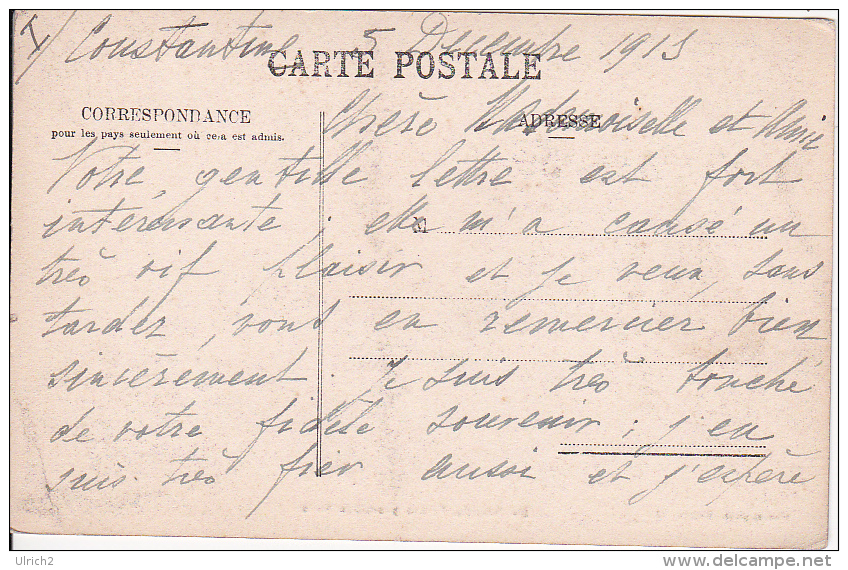 I/ Constantine 5 Décembre 1913
CARTE POSTALE
CORRESPONDANCE
pour les pays seulement où cela est admis.
ADRESSE
Chère Mademoiselle et Amie
Votre gentille lettre est fort
intéressante ; elle m'a causé un
très vif plaisir et je veux, sans
tarder, vous en remercier bien
sincèrement. Je suis très touché
de votre fidèle souvenir ; j'en
suis très fier aussi et j'espère
Ulrich2
www.delcampe.net